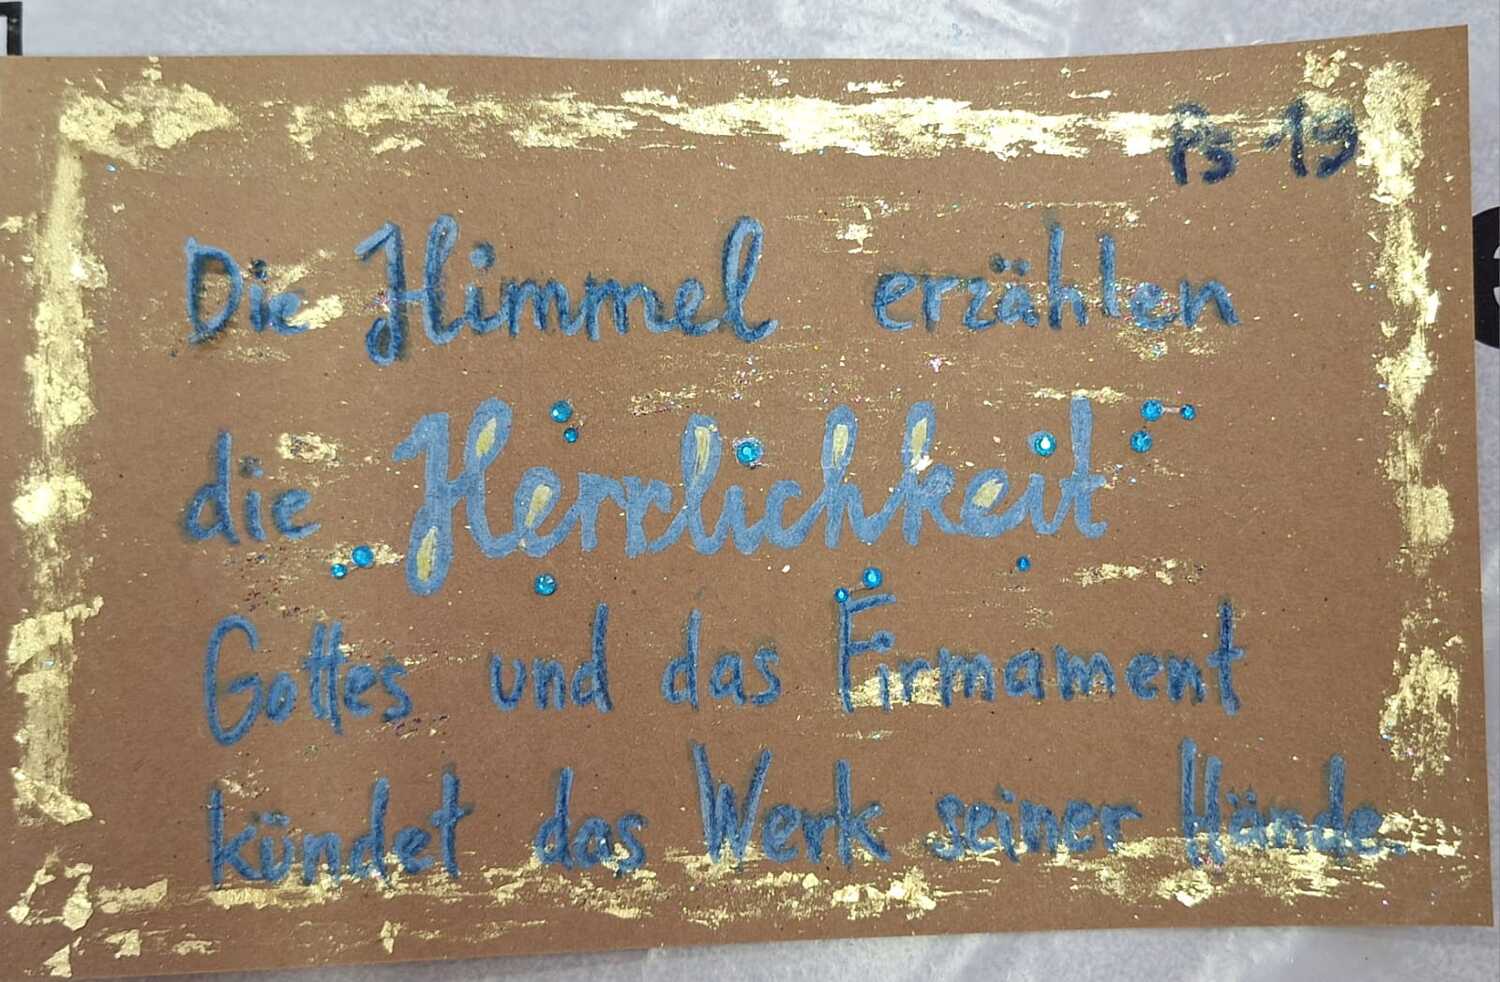 Ps 19
Die Himmel erzählen
die Herrlichkeit
Gottes und das Firmament
kündet das Werk seiner Hände.